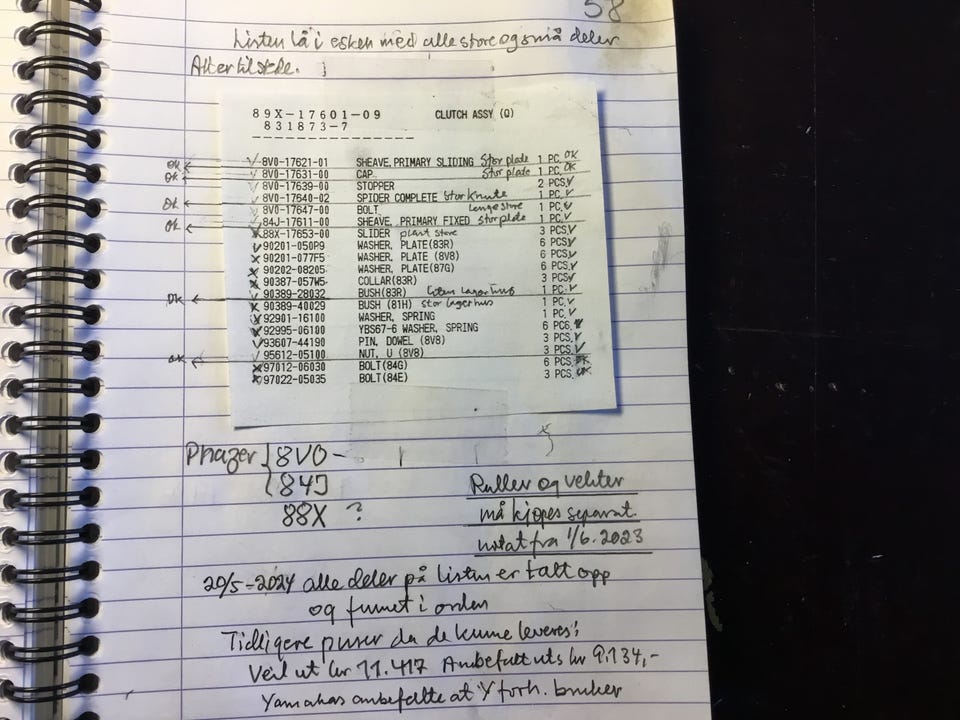 58
Listen lå i esken med alle store og små deler
Alt er tilstede.
89X-17601-09 CLUTCH ASSY (Q)
831873-7
ok 8V0-17621-01 SHEAVE, PRIMARY SLIDING Stor plade 1 PC. OK
ok 8V0-17631-00 CAP Stor plade 1 PC. OK
8V0-17639-00 STOPPER 2 PCS.
ok 8V0-17640-02 SPIDER COMPLETE Stor 1 PC.
8V0-17647-00 BOLT, Lange store 1 PC.
ok 84J-17611-00 SHEAVE, PRIMARY FIXED stor plate 1 PC.
88X-17653-00 SLIDER plast store 3 PCS.
90201-050P9 WASHER, PLATE(83R) 6 PCS.
90201-077F5 WASHER, PLATE (8V8) 6 PCS.
90202-08205 WASHER, PLATE(87G) 6 PCS.
90387-057W5 COLLAR(83R) 3 PCS.
ok 90389-28032 BUSH(83R) liten lagerhus 1 PC.
90389-40029 BUSH (81H) stor lagerhus 1 PC.
92901-16100 WASHER, SPRING 1 PC.
92995-06100 YBS67-6 WASHER, SPRING 6 PCS.
93607-44190 PIN, DOWEL (8V8) 3 PCS.
ok 95612-05100 NUT, U (8V8) 3 PCS.
97012-06030 BOLT(84G) 6 PCS. OK
97022-05035 BOLT(84E) 3 PCS. OK
Phazer { 8V0 -
84J
88X ?
Ruller og vekter
må kjøpes separat.
notat fra 1/6.2023
20/5-2024 alle deler på listen er tatt opp
og funnet i orden
Tidligere priser da de kunne leveres!
Veil ut kr 11.417 Anbefalt uts kr 9.134,-
Yamahas anbefalte at Y forh. bruker